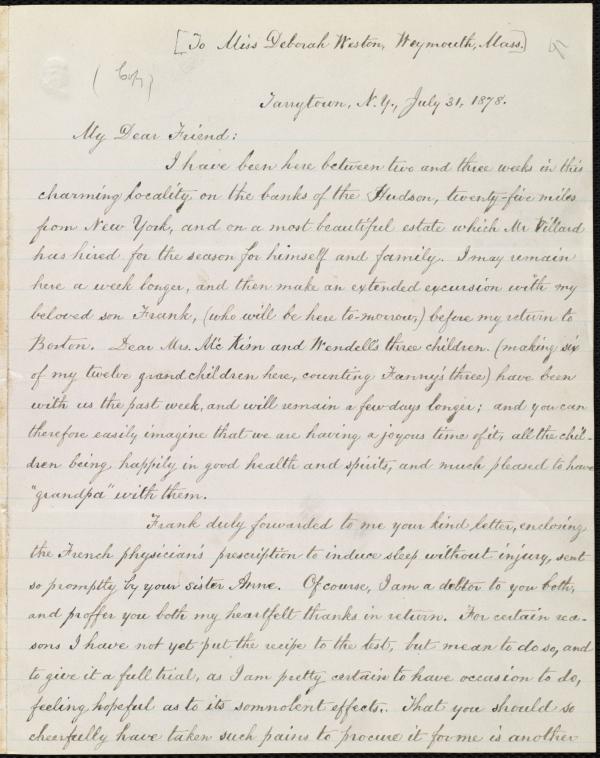 [To Miss Deborah Weston, Weymouth, Mass.]
(Copy)
Tarrytown, N.Y., July 31, 1878.
My Dear Friend:
I have been here between two and three weeks in this
charming locality on the banks of the Hudson, twenty-five miles
from New York, and on a most beautiful estate which Mr Villard
has hired for the season for himself and family. I may remain
here a week longer, and then make an extended excursion with my
beloved son Frank, (who will be here to-morrow,) before my return to
Boston. Dear Mrs. McKim and Wendell's three children (making six
of my twelve grandchildren here, counting Fanny's three) have been
with us the past week, and will remain a few days longer; and you can
therefore easily imagine that we are having a joyous time of it, all the chil-
dren being happily in good health and spirits, and much pleased to have
"grandpa" with them.
Frank duly forwarded to me your kind letter, enclosing
the French physician's prescription to induce sleep without injury, sent
so promptly by your sister Anne. Of course, I am a debtor to you both,
and proffer you both my heartfelt thanks in return. For certain rea-
sons I have not yet put the recipe to the test, but mean to do so, and
to give it a full trial, as I am pretty certain to have occasion to do,
feeling hopeful as to its somnolent effects. That you should so
cheerfully have taken such pains to procure it for me is another